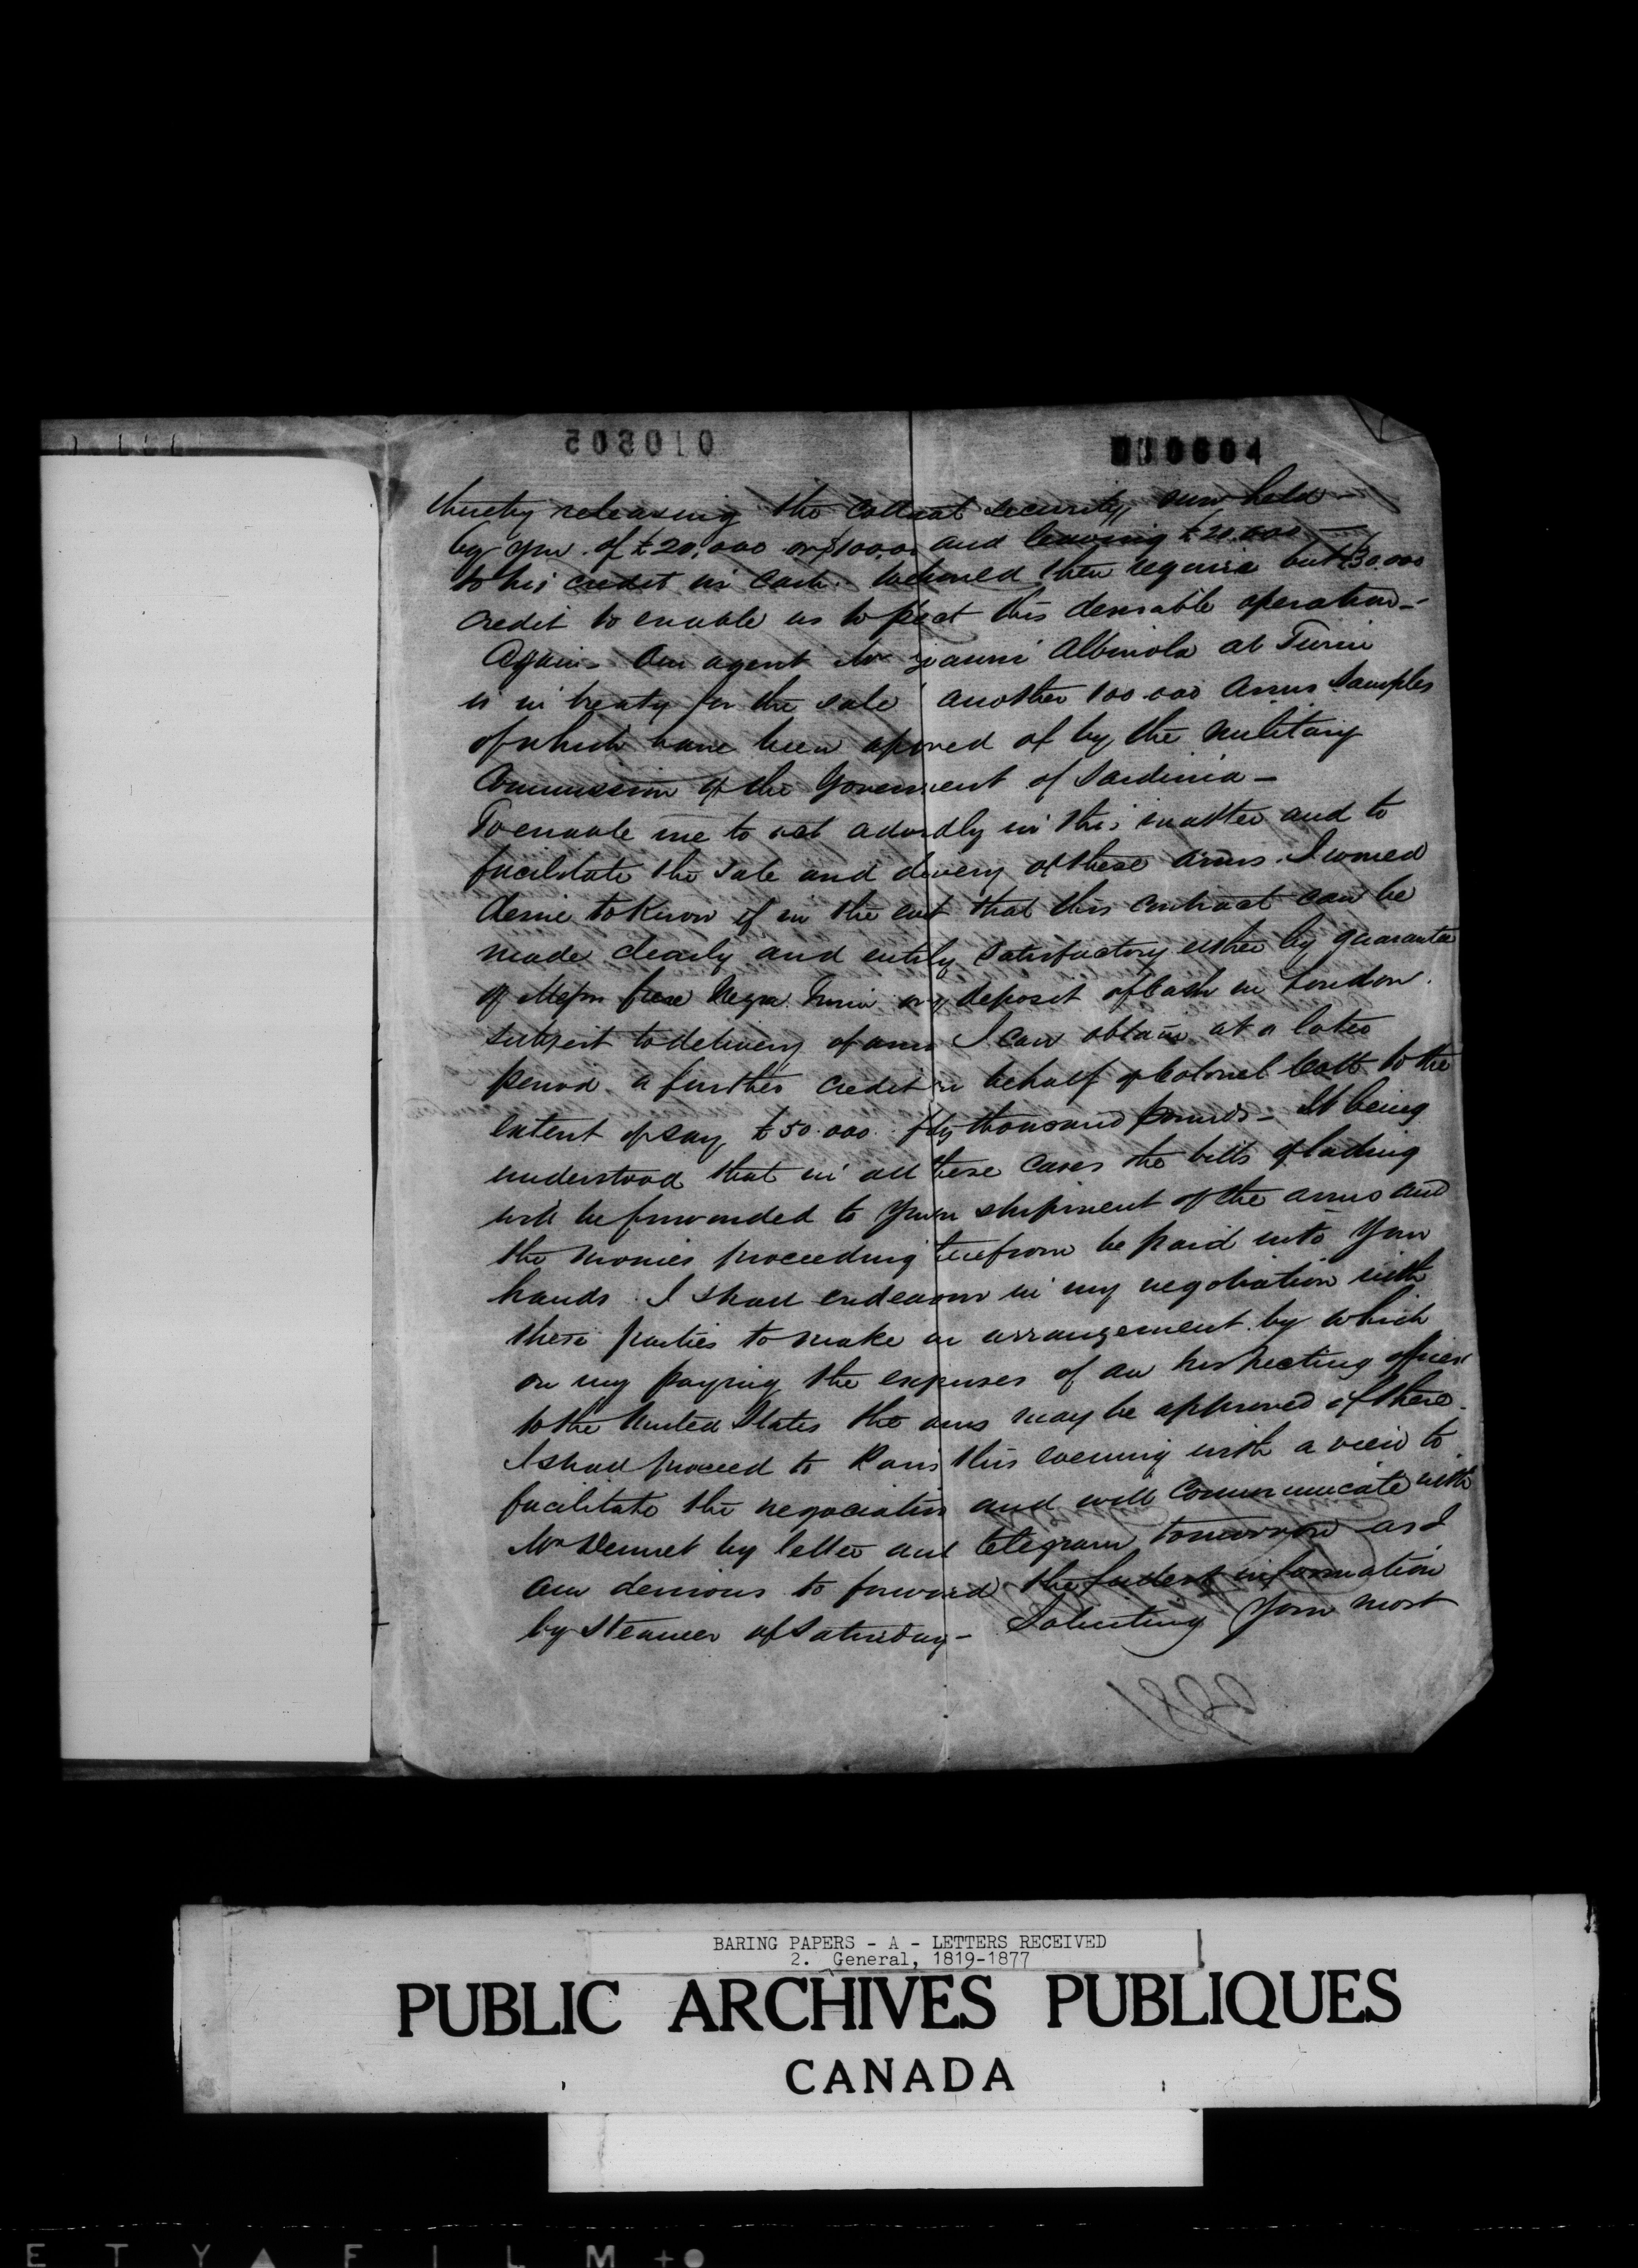 010604
thereby releasing the collat security now held
by you of £20,000 or $100,00 and leaving £20.000
to his credit in Cash. We should then require but £30.000
credit to enable us to fect this desirable operation—
Again. Our agent Mr Gianni Albinola at Turin
is in treaty for the sale another 100.000 arms Samples
of which have been apoved of by the Military
Commission of the Goverment of Sardinia—
To enable me to act advisdly in this matter and to
facilitate the sale and devery of these arms. I would
desire to know if in the evt that this contract can be
made clearly and entily satisfactory either by guarantee
of Messrs Negra Turin or deposit of Cash in London.
subject to delivery of arms I can obtain at a later
period a further credit in behalf of Colonel Colt to the
extent of say £50.000. fifty thousand pounds— It being
understood that in all these cases the bills of lading
will be forwarded to You shipment of the arms and
the monies proceeding therefrom be paid into Your
hands. I shall endeavour in my negotiation with
these parties to make an arrangement by which
on my paying the expenses of an inspecting officer
to the United States the arms may be approved of there.
I shall proceed to Paris this evening with a view to
facilitate the negociation and will communicate with
Mr Dennet by letter and telegram tomorrow as I
am desirous to forward the fullest information
by Steamer of Saturday— Soliciting Your most
BARING PAPERS - A - LETTERS RECEIVED
2. General, 1819-1877
PUBLIC ARCHIVES PUBLIQUES
CANADA
E T Y ▲ F I L M